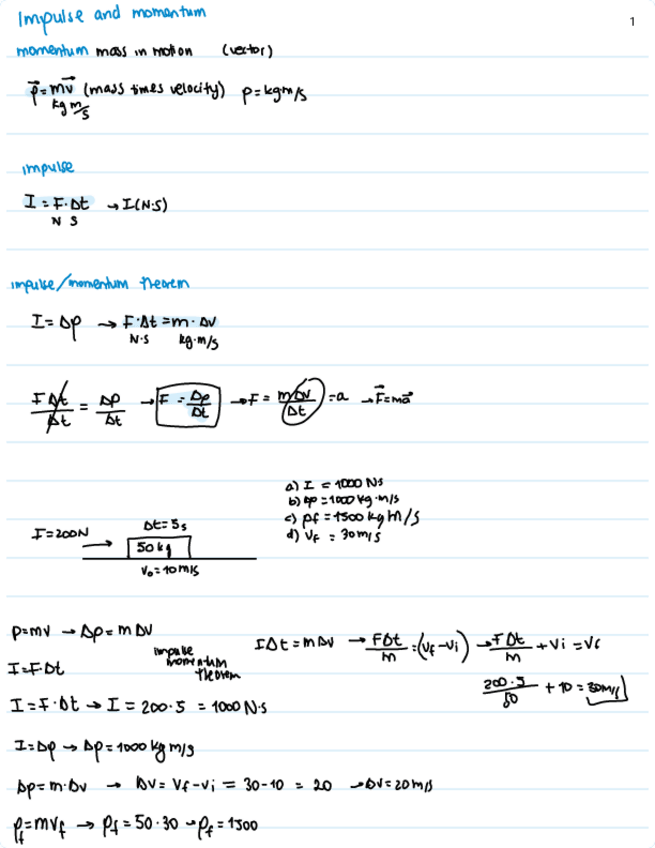 Impulse and momentum
1
momentum mass in motion (vector)
p⃗ = mv⃗ (mass times velocity) p = kgm/s
kg m/s
impulse
I = F·Δt → I(N·S)
N S
impulse/momentum theorem
I = Δp → F·Δt = m·Δv
N·S kg·m/s
FΔt/Δt = Δp/Δt → F = Δp/Δt → F = mΔv/Δt = a → F⃗=ma⃗
a) I = 1000 Ns
b) Δp = 1000 kg·m/s
c) pf = 1500 kg m/s
d) Vf = 30m/s
F=200N
Δt=5s
50kg
V₀=10m/s
p=mv → Δp = m Δv
impulse momentum theorem
FΔt = mΔv → FΔt/m = (Vf-Vi) → FΔt/m + Vi = Vf
I=FΔt
200·5/50 + 10 = 30m/s
I = F·Δt → I = 200·5 = 1000 N·S
I=Δp → Δp = 1000 kg m/s
Δp = m·Δv → Δv = Vf-Vi = 30-10 = 20 → Δv=20m/s
pf = mvf → pf = 50·30 → pf = 1500